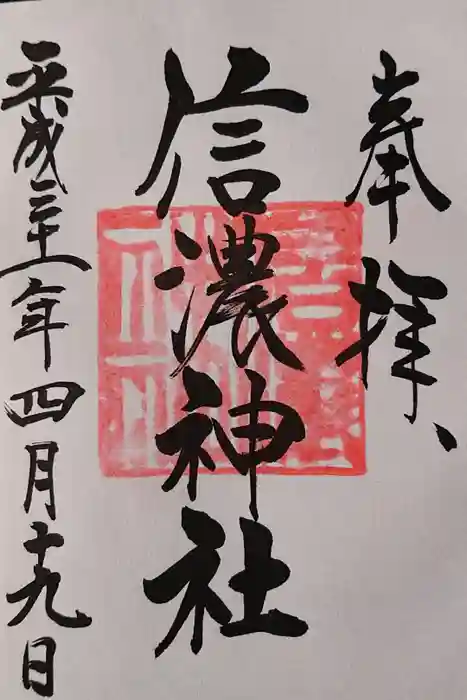 奉拝
信濃神社
平成三十一年四月十九日